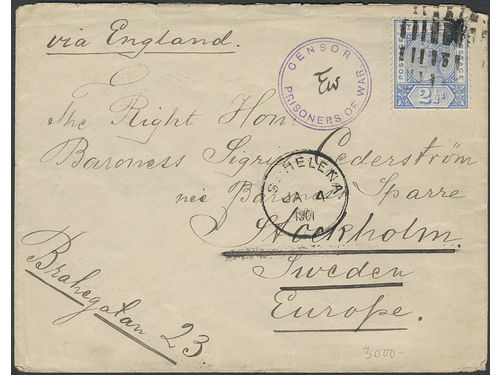 via England.
CENSOR
PRISONERS OF WAR
POSTAGE
2½d
The Right Hon.
Baroness Sigrid Cederström
née Baroness Sparre
ST HELENA
JA 4
1901
Stockholm.
Sweden
Europe.
Brahegatan 23
3000-